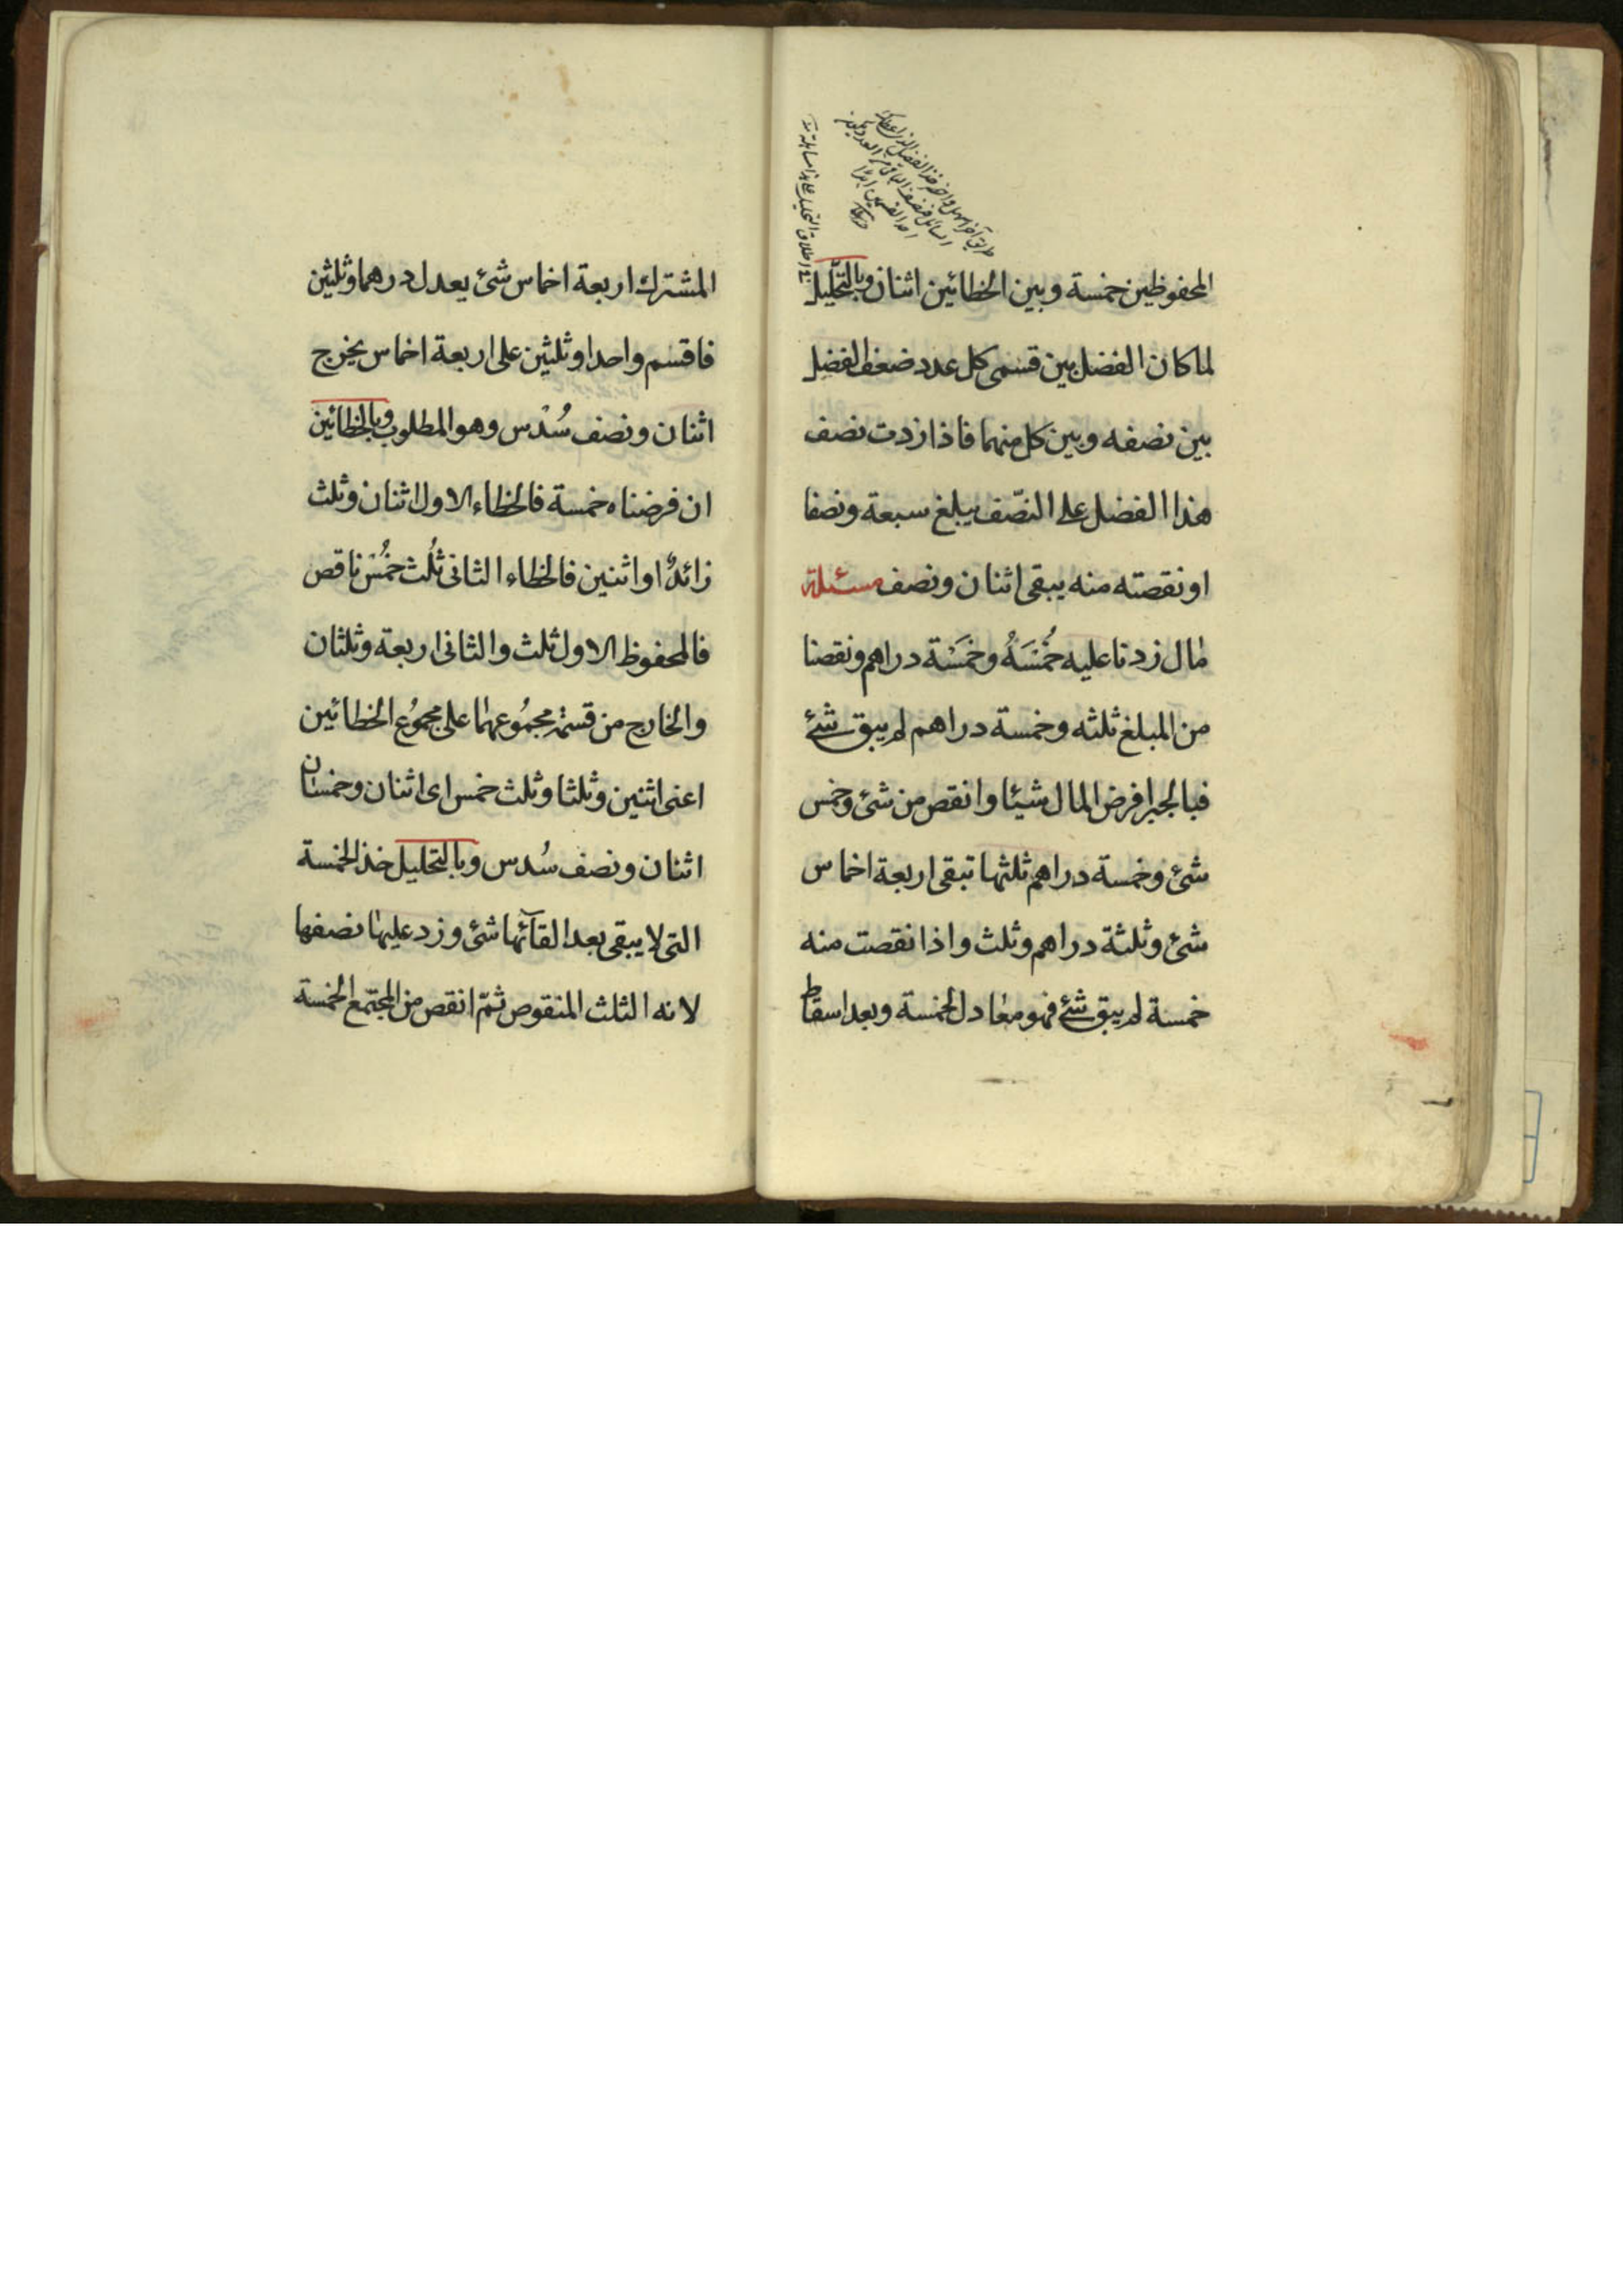 المحفوظين خمسة وبين الخطائين اثنان وبالتحليل
لما كان الفضل بين قسمى كل عدد ضعف الفضل
بين نصفه وبين كل منهما فاذا زدت نصف
هذا الفضل على النصّف يبلغ سبعة ونصفا
او نقصته منه يبقى اثنان ونصف مسئلة
مال زدنا عليه خُمْسَهُ وخَمْسَة دراهم ونقصنا
من المبلغ ثلثه وخمسة دراهم لم يبق شئ
فبالجبر افرض المال شيئا وانقص من شئ وخمس
شئ وخمسة دراهم ثلثها تبقى اربعة اخماس
شئ وثلثة دراهم وثلث واذا نقصت منه
خمسة لم يبق شئ فهو معادل الخمسة وبعد اسقاط
المشترك اربعة اخماس شئ يعدل درهما وثلثين
فاقسم واحدا وثلثين على اربعة اخماس يخرج
اثنان ونصف سُدْس وهو المطلوب وبالخطائين
ان فرضناه خمسة فالخطاء الاول اثنان وثلث
زائدٌ او اثنين فالخطاء الثانى ثُلث خُمْس ناقص
فالمحفوظ الاول ثلث والثانى اربعة وثلثان
والخارج من قسمة مجمُوعهما على مجمُوع الخطائين
اعنى اثنين وثلثا وثلث خمس اى اثنان وخمسان
اثنان ونصف سُدس وبالتحليل خذ الخمسة
التى لا يبقى بعد القآئها شئ وزد عليها نصفها
لانه الثلث المنقوص ثمّ انقص من المجتمع الخمسة